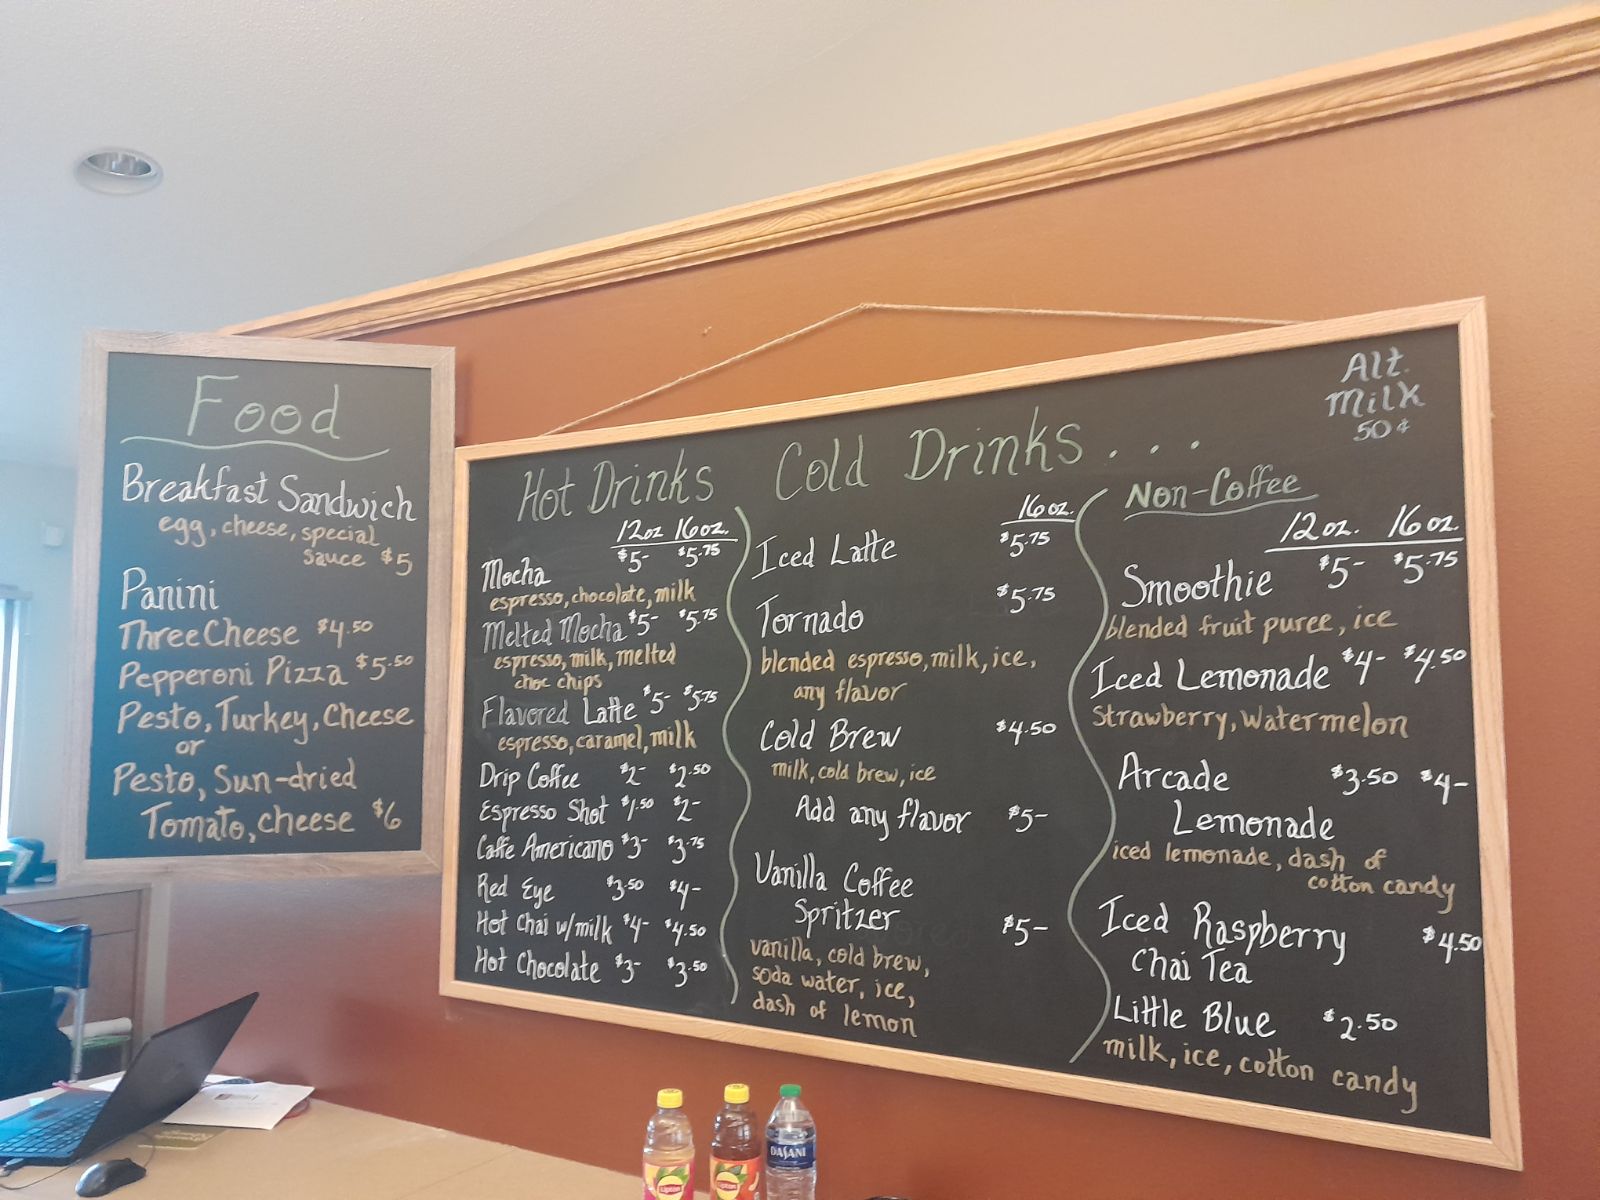 Food
Breakfast Sandwich
egg, cheese, special
sauce $5
Panini
Three Cheese $4.50
Pepperoni Pizza $5.50
Pesto, Turkey, Cheese
or
Pesto, Sun-dried
Tomato, cheese $6
Hot Drinks
12oz 16oz.
Mocha $5- $5.75
espresso, chocolate, milk
Melted Mocha $5- $5.75
espresso, milk, melted
choc chips
Flavored Latte $5- $5.75
espresso, caramel, milk
Drip Coffee $2- $2.50
Espresso Shot $1.50 $2-
Caffe Americano $3- $3.75
Red Eye $3.50 $4-
Hot Chai w/milk $4- $4.50
Hot Chocolate $3- $3.50
Cold Drinks...
16oz.
Iced Latte $5.75
Tornado $5.75
blended espresso, milk, ice,
any flavor
Cold Brew $4.50
milk, cold brew, ice
Add any flavor $5-
Vanilla Coffee
Spritzer $5-
vanilla, cold brew,
soda water, ice,
dash of lemon
Alt.
Milk
50¢
Non-Coffee
12oz. 16oz.
Smoothie $5- $5.75
blended fruit puree, ice
Iced Lemonade $4- $4.50
Strawberry, Watermelon
Arcade $3.50 $4-
Lemonade
iced lemonade, dash of
cotton candy
Iced Raspberry $4.50
Chai Tea
Little Blue $2.50
milk, ice, cotton candy
Lipton
Lipton
DASANI